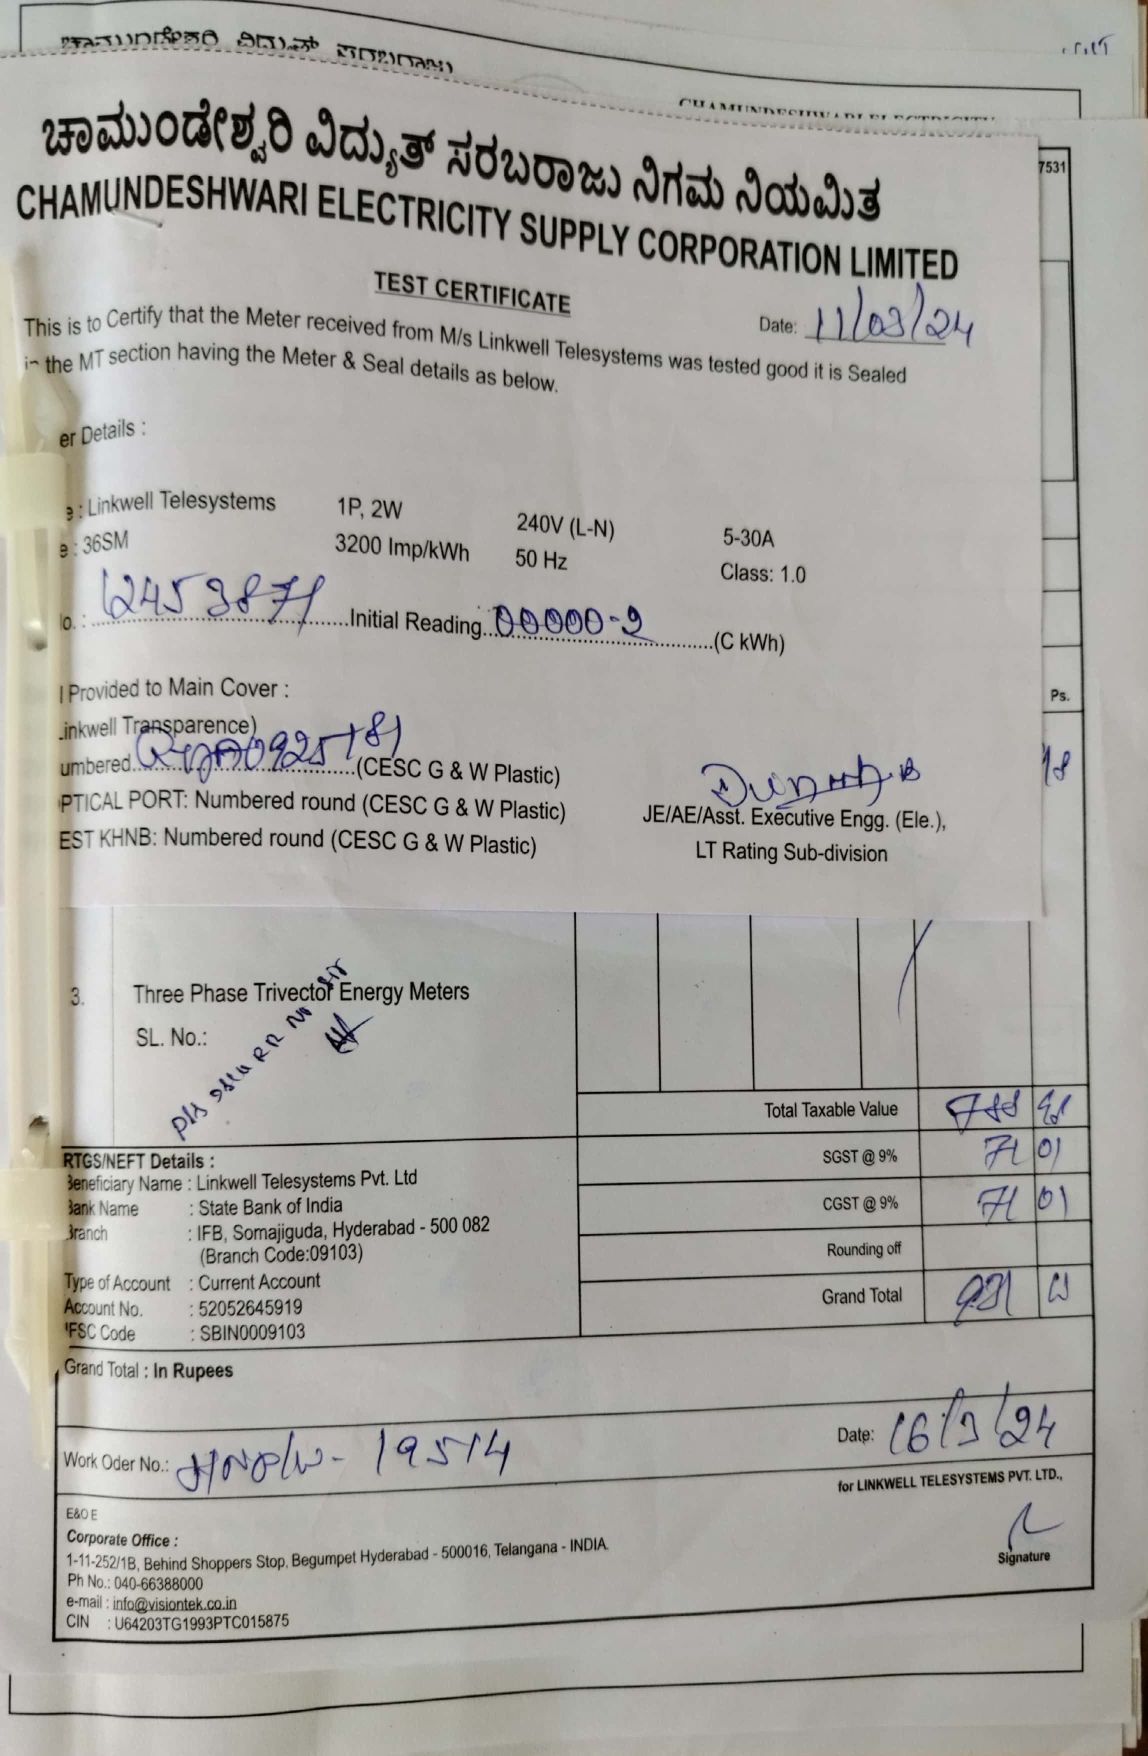 ಚಾಮುಂಡೇಶ್ವರಿ ವಿದ್ಯುತ್ ಸರಬರಾಜು
CHAMUNDESHWARI ELECTRICITY
7531
ಚಾಮುಂಡೇಶ್ವರಿ ವಿದ್ಯುತ್ ಸರಬರಾಜು ನಿಗಮ ನಿಯಮಿತ
CHAMUNDESHWARI ELECTRICITY SUPPLY CORPORATION LIMITED
TEST CERTIFICATE
Date: 11/03/24
This is to Certify that the Meter received from M/s Linkwell Telesystems was tested good it is Sealed
in the MT section having the Meter & Seal details as below.
er Details :
e : Linkwell Telesystems 1P, 2W 240V (L-N) 5-30A
e : 36SM 3200 Imp/kWh 50 Hz Class: 1.0
lo. : 12453871 Initial Reading 00000-2 (C kWh)
l Provided to Main Cover :
inkwell Transparence)
umbered (CESC G & W Plastic)
PTICAL PORT: Numbered round (CESC G & W Plastic)
EST KHNB: Numbered round (CESC G & W Plastic)
JE/AE/Asst. Executive Engg. (Ele.),
LT Rating Sub-division
Ps.
3. Three Phase Trivector Energy Meters
SL. No.:
Total Taxable Value
SGST @ 9% 71 01
CGST @ 9% 71 01
Rounding off
Grand Total 931
RTGS/NEFT Details :
Beneficiary Name : Linkwell Telesystems Pvt. Ltd
Bank Name : State Bank of India
Branch : IFB, Somajiguda, Hyderabad - 500 082
(Branch Code:09103)
Type of Account : Current Account
Account No. : 52052645919
IFSC Code : SBIN0009103
Grand Total : In Rupees
Work Oder No.: 19514
Date: 16/3/24
for LINKWELL TELESYSTEMS PVT. LTD.,
Signature
E&O E
Corporate Office :
1-11-252/1B, Behind Shoppers Stop, Begumpet Hyderabad - 500016, Telangana - INDIA.
Ph No.: 040-66388000
e-mail : info@visiontek.co.in
CIN : U64203TG1993PTC015875